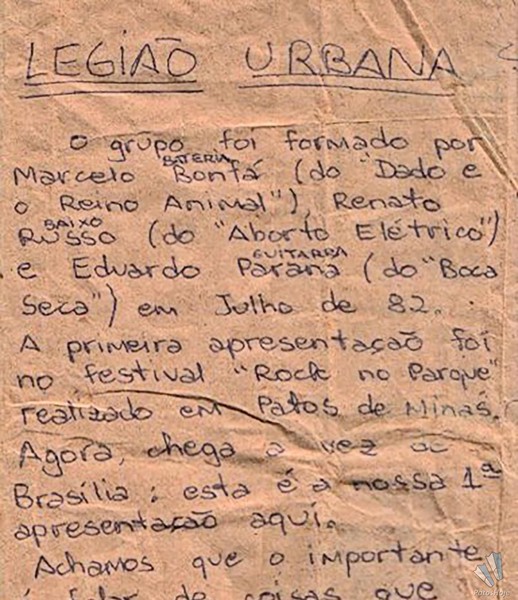 LEGIÃO URBANA
O grupo foi formado por
BATERIA
Marcelo Bonfá (do "Dado e
o Reino Animal"), Renato
BAIXO
Russo (do "Aborto Elétrico")
GUITARRA
e Eduardo Paraná (do "Boca
Seca") em Julho de 82.
A primeira apresentação foi
no festival "Rock no Parque"
realizado em Patos de Minas.
Agora, chega a vez de
Brasília: esta é a nossa 1ª
apresentação aqui.
Achamos que o importante
é falar de coisas que